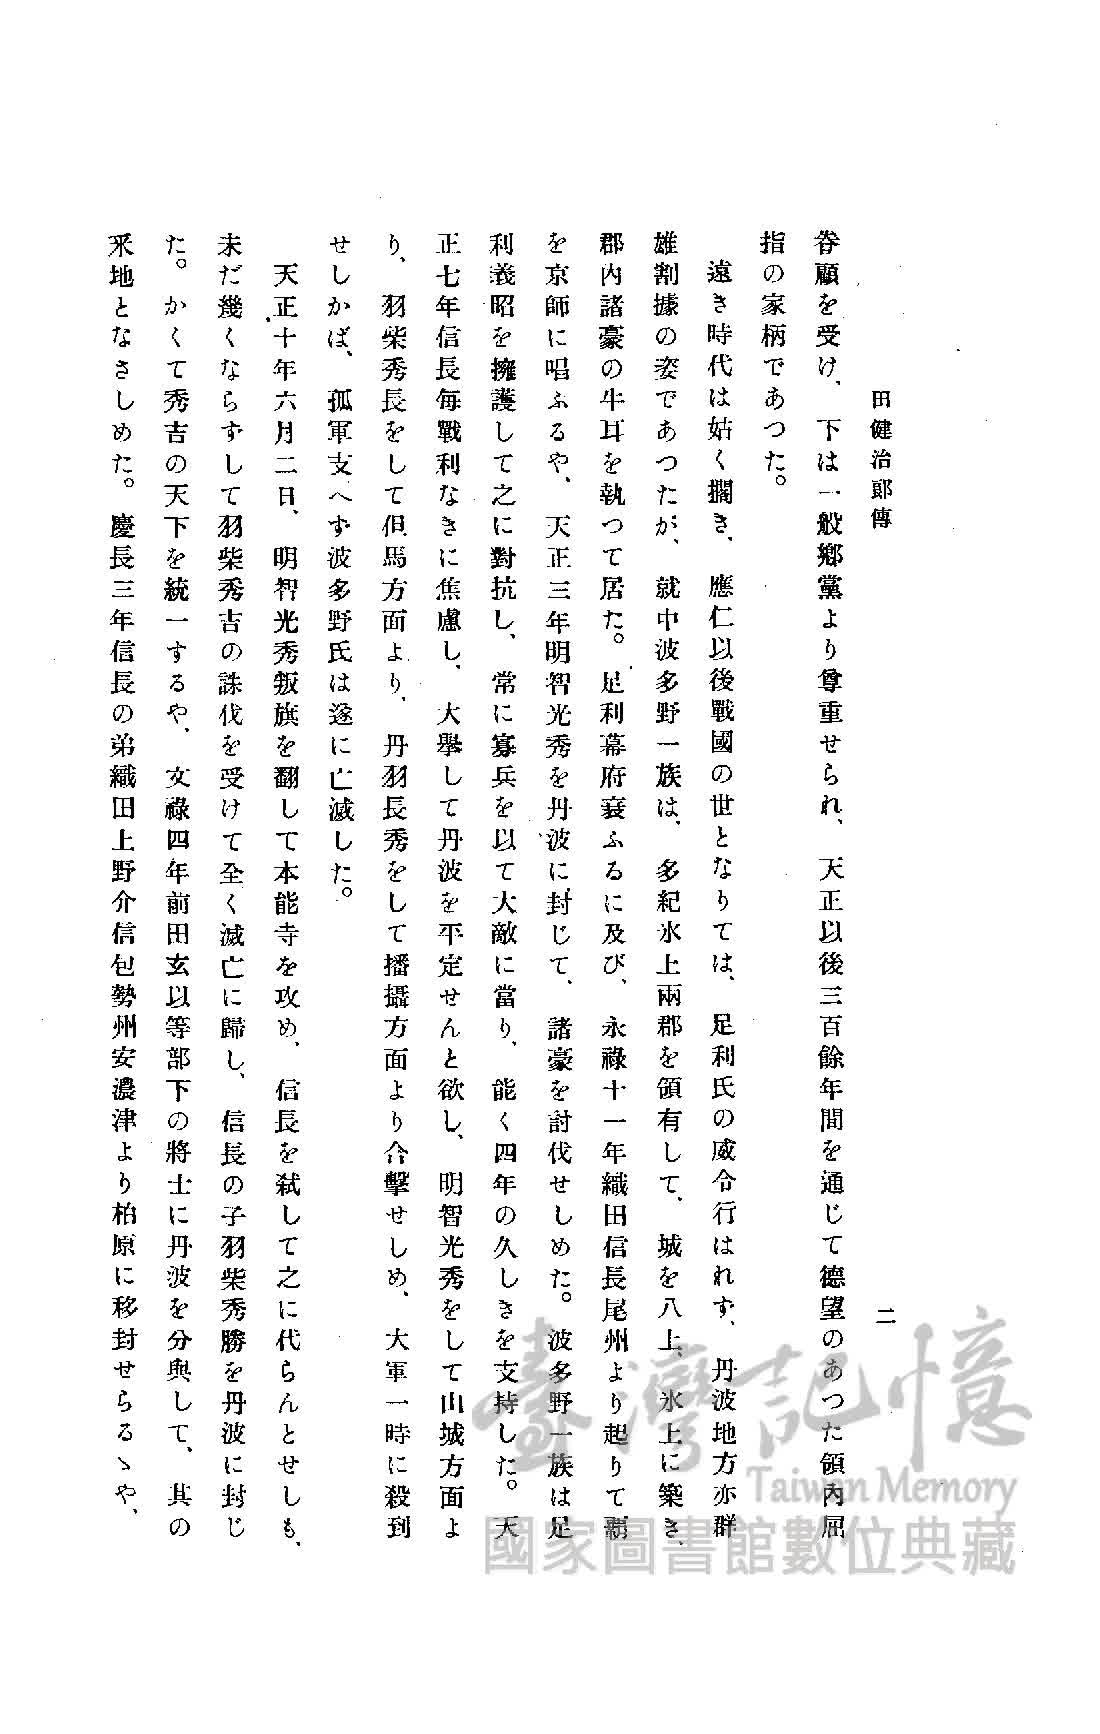 田健治郎傳
二
眷顧を受け、下は一般鄕黨より尊重せられ、天正以後三百餘年間を通じて德望のあつた領內屈
指の家柄であつた。
遠き時代は姑く擱き、應仁以後戰國の世となりては、足利氏の威令行はれず、丹波地方亦群
雄割據の姿であつたが、就中波多野一族は、多紀氷上兩郡を領有して、城を八上、氷上に築き、
郡內諸豪の牛耳を執つて居た。足利幕府衰ふるに及び、永祿十一年織田信長尾州より起りて覇
を京師に唱ふるや、天正三年明智光秀を丹波に封じて、諸豪を討伐せしめた。波多野一族は足
利義昭を擁護して之に對抗し、常に寡兵を以て大敵に當り、能く四年の久しきを支持した。天
正七年信長每戰利なきに焦慮し、大擧して丹波を平定せんと欲し、明智光秀をして山城方面よ
り、羽柴秀長をして但馬方面より、丹羽長秀をして播攝方面より合擊せしめ、大軍一時に殺到
せしかば、孤軍支へず波多野氏は遂に亡滅した。
天正十年六月二日、明智光秀叛旗を翻して本能寺を攻め、信長を弑して之に代らんとせしも、
未だ幾くならずして羽柴秀吉の誅伐を受けて全く滅亡に歸し、信長の子羽柴秀勝を丹波に封じ
た。かくて秀吉の天下を統一するや、文祿四年前田玄以等部下の將士に丹波を分與して、其の
釆地となさしめた。慶長三年信長の弟織田上野介信包勢州安濃津より柏原に移封せらるゝや、
臺灣記憶
Taiwan Memory
國家圖書館數位典藏